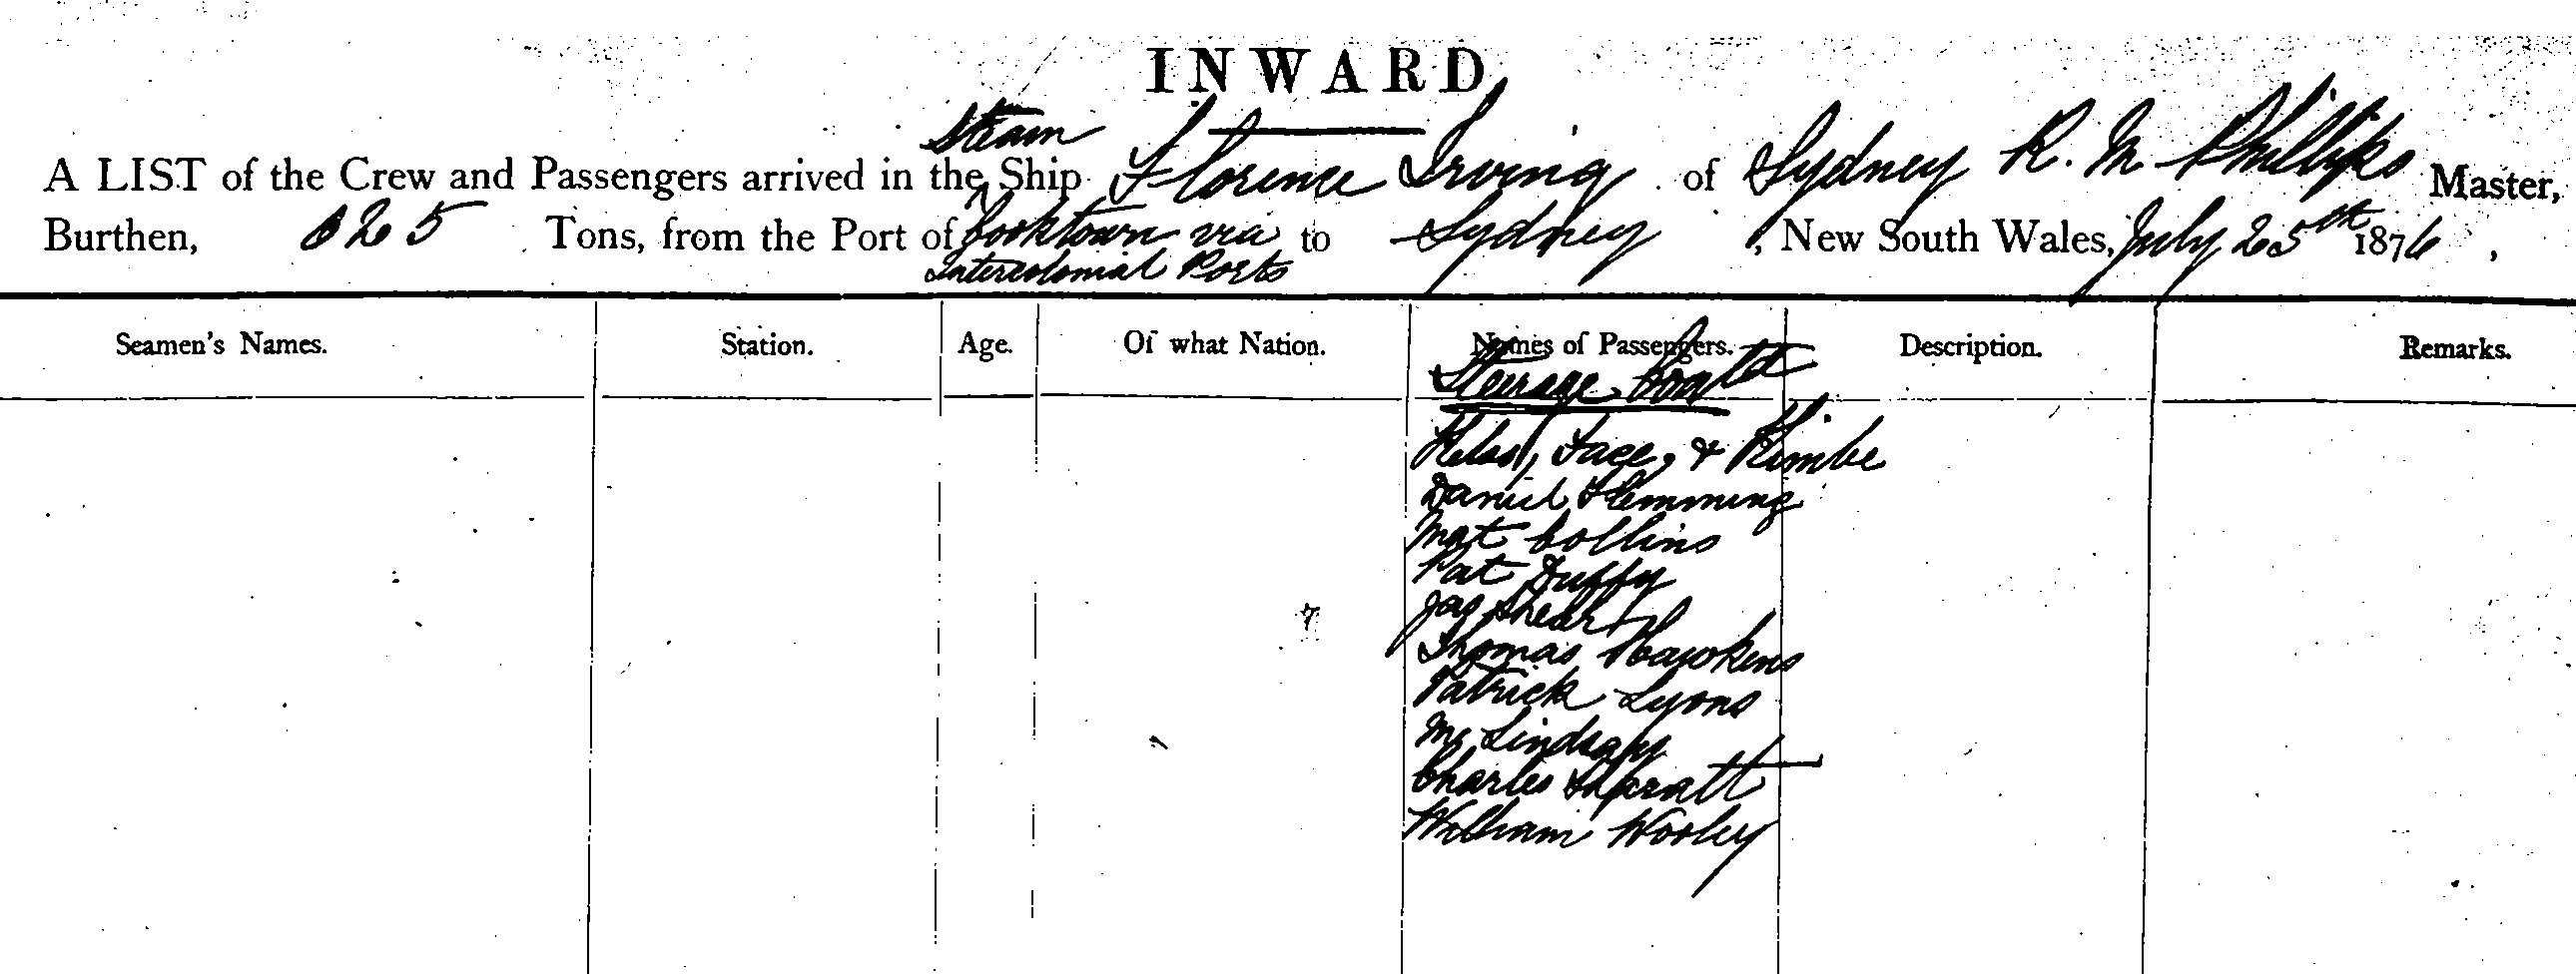 INWARD
Steam
A LIST of the Crew and Passengers arrived in the Ship Florence Irving of Sydney R. M Phillips Master,
Burthen, 625 Tons, from the Port of Cooktown via to Sydney, New South Wales, July 25th 1876,
Intercolonial Ports
Seamen's Names. Station. Age. Of what Nation. Names of Passengers. Description. Remarks.
Steerage Contd
Face, & Kimbe
Daniel Flemming
Mat Collins
Pat Duffy
Jas Shear
Thomas Hawkins
Patrick Lyons
Mr Lindsay
Charles Sharatt
William Wooley